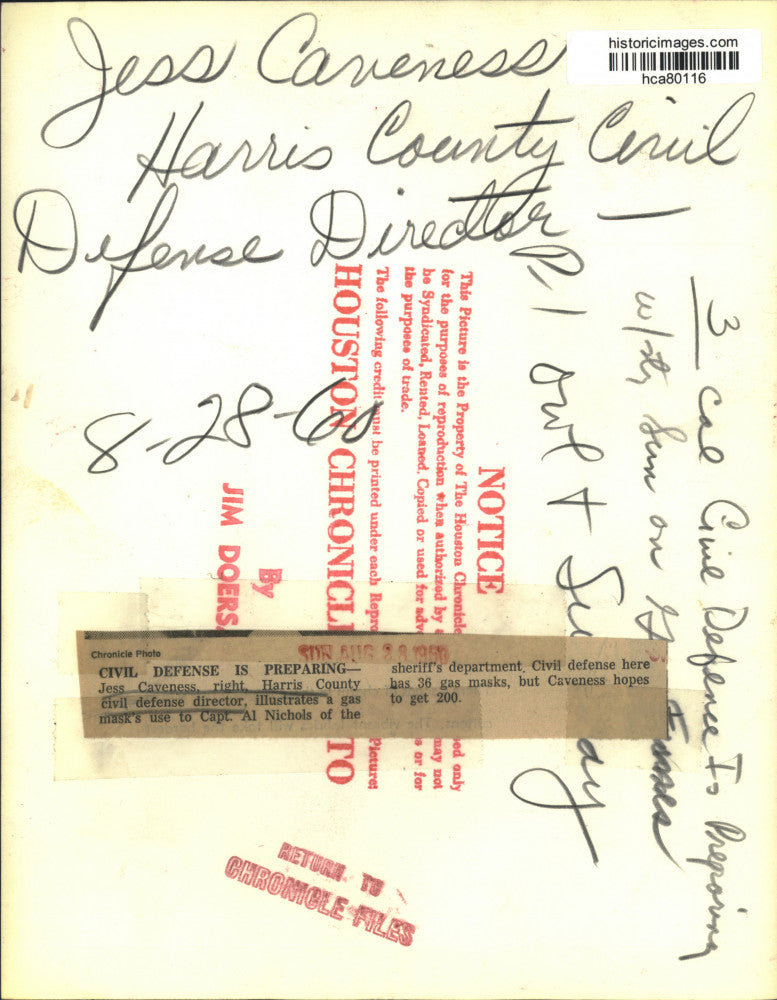 historicimages.com
hca80116
Jess Caveness
Harris County Civil
Defense Director —
8-28-60
P. 1 Owl + Su dy
3 Col Civil Defense Is Preparing
w/sty Sun on
Fumes
NOTICE
This Picture is the Property of The Houston Chronicle
for the purposes of reproduction when authorized by
be Syndicated, Rented, Loaned, Copied or used for adv
the purposes of trade.
sed only
may not
s or for
The following credit must be printed under each Repro
Picture:
HOUSTON CHRONICL TO
By
JIM DOERS
SUN AUG 28 1960
Chronicle Photo
CIVIL DEFENSE IS PREPARING—
Jess Caveness, right, Harris County
civil defense director, illustrates a gas
mask's use to Capt. Al Nichols of the
sheriff's department. Civil defense here
has 36 gas masks, but Caveness hopes
to get 200.
RETURN TO
CHRONICLE FILES